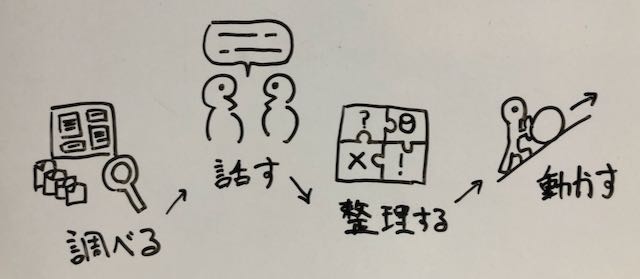 調べる
話す
? 8
× !
整理する
動かす